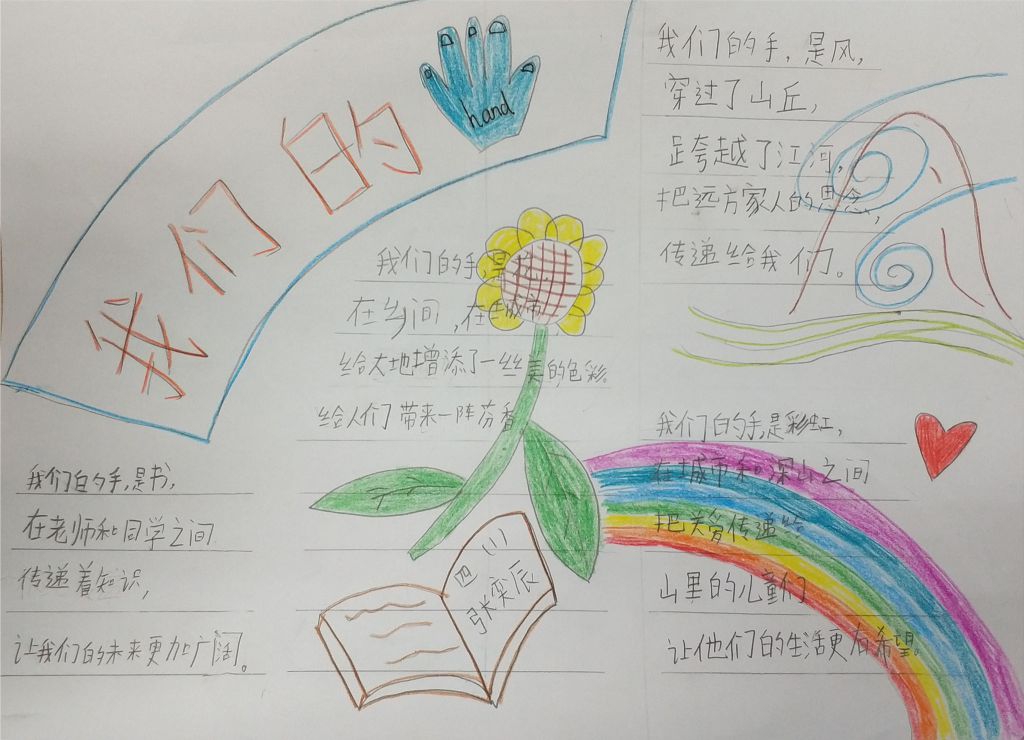 我们的
hand
我们的手,是书,
在老师和同学之间
传递着知识,
让我们的未来更加广阔。
我们的手,是
在乡间,在城市,
给大地增添了一丝美的色彩。
给人们带来一阵芬香
四(1)
张奕辰
我们的手,是风,
穿过了山丘,
跨越了江河,
把远方家人的思念,
传递给我们。
我们的手,是彩虹,
在城市和深山之间
把关爱传递给
山里的儿童们
让他们的生活更有希望。